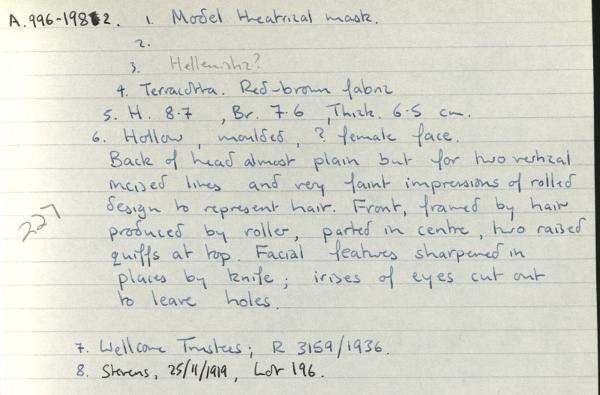 A.996-1982. 1. Model theatrical mask.
2.
3. Hellenistic?
4. Terracotta. Red-brown fabric
5. H. 8.7 , Br. 7.6 , Thick. 6.5 cm.
6. Hollow, moulded, ? female face.
Back of head almost plain but for two vertical
incised lines and very faint impressions of rolled
design to represent hair. Front, framed by hair
227
produced by roller, parted in centre, two raised
quiffs at top. Facial features sharpened in
places by knife; irises of eyes cut out
to leave holes.
7. Wellcome Trustees; R 3159/1936.
8. Stevens, 25/11/1919, Lot 196.